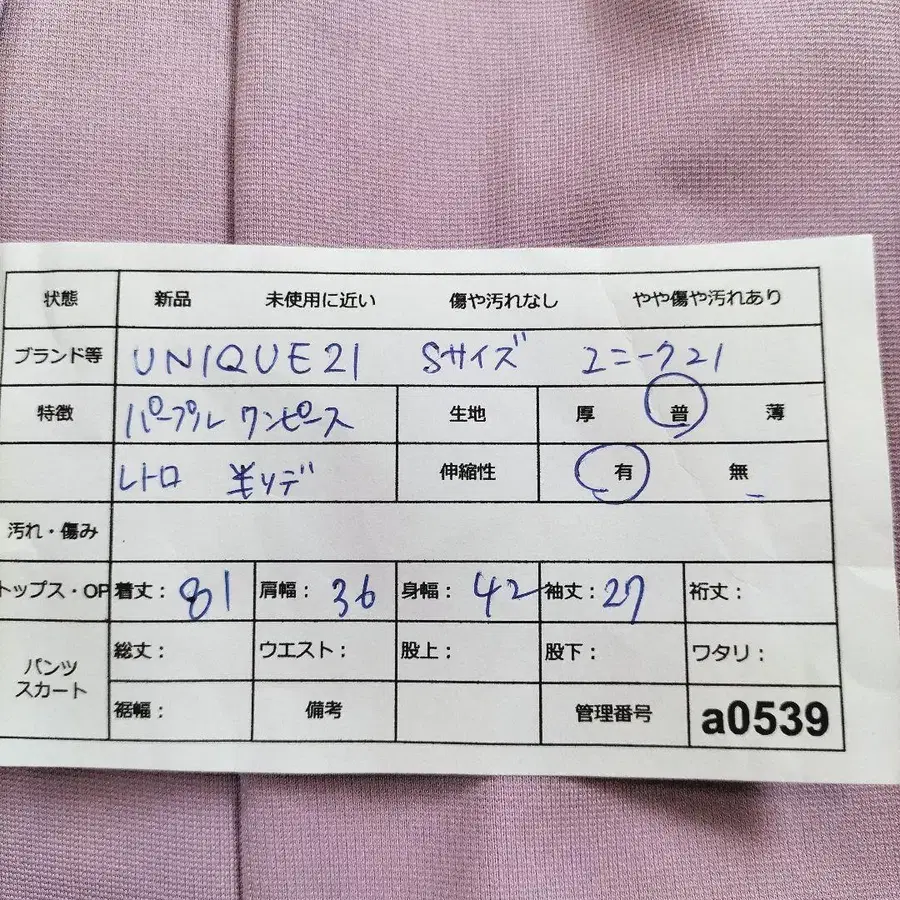 状態 新品 未使用に近い 傷や汚れなし やや傷や汚れあり
ブランド等 UNIQUE21 Sサイズ ユニーク21
特徴 パープル ワンピース 生地 厚 普 薄
レトロ 伸縮性 有 無
汚れ・傷み
トップス・OP 着丈: 81 肩幅: 36 身幅: 42 袖丈: 27 裄丈:
パンツ スカート 総丈: ウエスト: 股上: 股下: ワタリ:
裾幅: 備考 管理番号 a0539